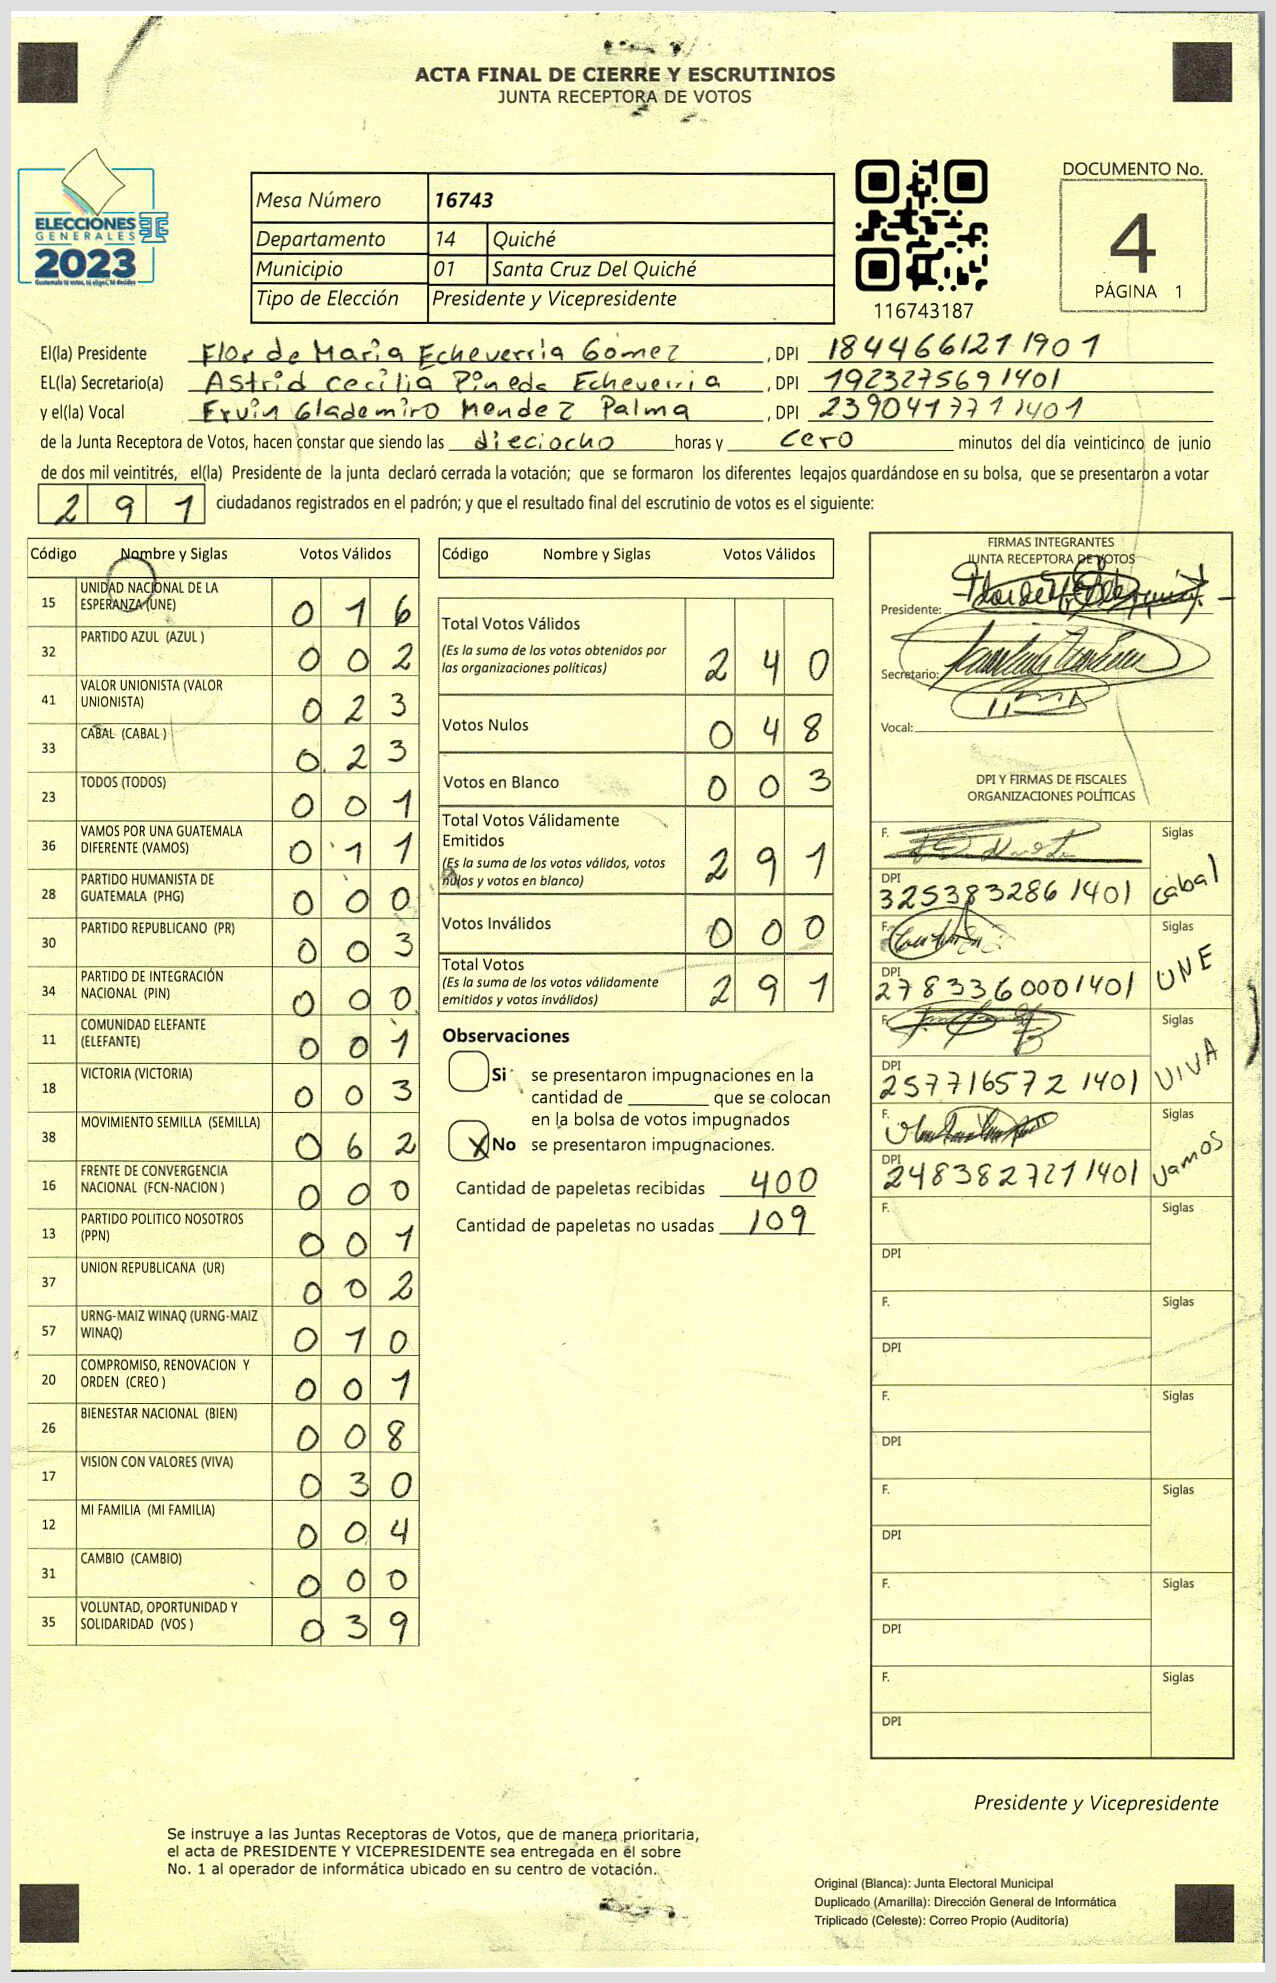 ACTA FINAL DE CIERRE Y ESCRUTINIOS
JUNTA RECEPTORA DE VOTOS
ELECCIONES
GENERALES
2023
Guatemala tú votas, tú eliges, tú decides
Mesa Número 16743
Departamento 14 Quiché
Municipio 01 Santa Cruz Del Quiché
Tipo de Elección Presidente y Vicepresidente
116743187
DOCUMENTO No.
4
PÁGINA 1
El(la) Presidente Flor de Maria Echeverria Gomez, DPI 1844661211901
EL(la) Secretario(a) Astrid Cecilia Pineda Echeverria, DPI 1923275691401
y el(la) Vocal Ervin Glademiro Mendez Palma, DPI 2390417711401
de la Junta Receptora de Votos, hacen constar que siendo las dieciocho horas y cero minutos del día veinticinco de junio
de dos mil veintitrés, el(la) Presidente de la junta declaró cerrada la votación; que se formaron los diferentes legajos quardándose en su bolsa, que se presentaron a votar
291 ciudadanos registrados en el padrón; y que el resultado final del escrutinio de votos es el siguiente:
Código Nombre y Siglas Votos Válidos
15 UNIDAD NACIONAL DE LA
ESPERANZA (UNE) 016
32 PARTIDO AZUL (AZUL ) 002
41 VALOR UNIONISTA (VALOR
UNIONISTA) 023
33 CABAL (CABAL ) 023
23 TODOS (TODOS) 001
36 VAMOS POR UNA GUATEMALA
DIFERENTE (VAMOS) 011
28 PARTIDO HUMANISTA DE
GUATEMALA (PHG) 000
30 PARTIDO REPUBLICANO (PR) 003
34 PARTIDO DE INTEGRACIÓN
NACIONAL (PIN) 000
11 COMUNIDAD ELEFANTE
(ELEFANTE) 001
18 VICTORIA (VICTORIA) 003
38 MOVIMIENTO SEMILLA (SEMILLA) 062
16 FRENTE DE CONVERGENCIA
NACIONAL (FCN-NACION ) 000
13 PARTIDO POLITICO NOSOTROS
(PPN) 001
37 UNION REPUBLICANA (UR) 002
57 URNG-MAIZ WINAQ (URNG-MAIZ
WINAQ) 010
20 COMPROMISO, RENOVACION Y
ORDEN (CREO ) 001
26 BIENESTAR NACIONAL (BIEN) 008
17 VISION CON VALORES (VIVA) 030
12 MI FAMILIA (MI FAMILIA) 004
31 CAMBIO (CAMBIO) 000
35 VOLUNTAD, OPORTUNIDAD Y
SOLIDARIDAD (VOS ) 039
Código Nombre y Siglas Votos Válidos
Total Votos Válidos
(Es la suma de los votos obtenidos por
las organizaciones políticas) 240
Votos Nulos 048
Votos en Blanco 003
Total Votos Válidamente
Emitidos
(Es la suma de los votos válidos, votos
nulos y votos en blanco) 291
Votos Inválidos 000
Total Votos
(Es la suma de los votos válidamente
emitidos y votos inválidos) 291
Observaciones
Si se presentaron impugnaciones en la
cantidad de que se colocan
en la bolsa de votos impugnados
X No se presentaron impugnaciones.
Cantidad de papeletas recibidas 400
Cantidad de papeletas no usadas 109
FIRMAS INTEGRANTES
JUNTA RECEPTORA DE VOTOS
Presidente:
Secretario:
Vocal:
DPI Y FIRMAS DE FISCALES
ORGANIZACIONES POLÍTICAS
F. Siglas
DPI
3253832861401 Cabal
F. Siglas
DPI
2783360001401 UNE
F. Siglas
DPI
2577165721401 VIVA
F. Siglas
DPI
2483827211401 Vamos
F. Siglas
DPI
F. Siglas
DPI
F. Siglas
DPI
F. Siglas
DPI
F. Siglas
DPI
F. Siglas
DPI
Presidente y Vicepresidente
Se instruye a las Juntas Receptoras de Votos, que de manera prioritaria,
el acta de PRESIDENTE Y VICEPRESIDENTE sea entregada en el sobre
No. 1 al operador de informática ubicado en su centro de votación.
Original (Blanca): Junta Electoral Municipal
Duplicado (Amarilla): Dirección General de Informática
Triplicado (Celeste): Correo Propio (Auditoría)